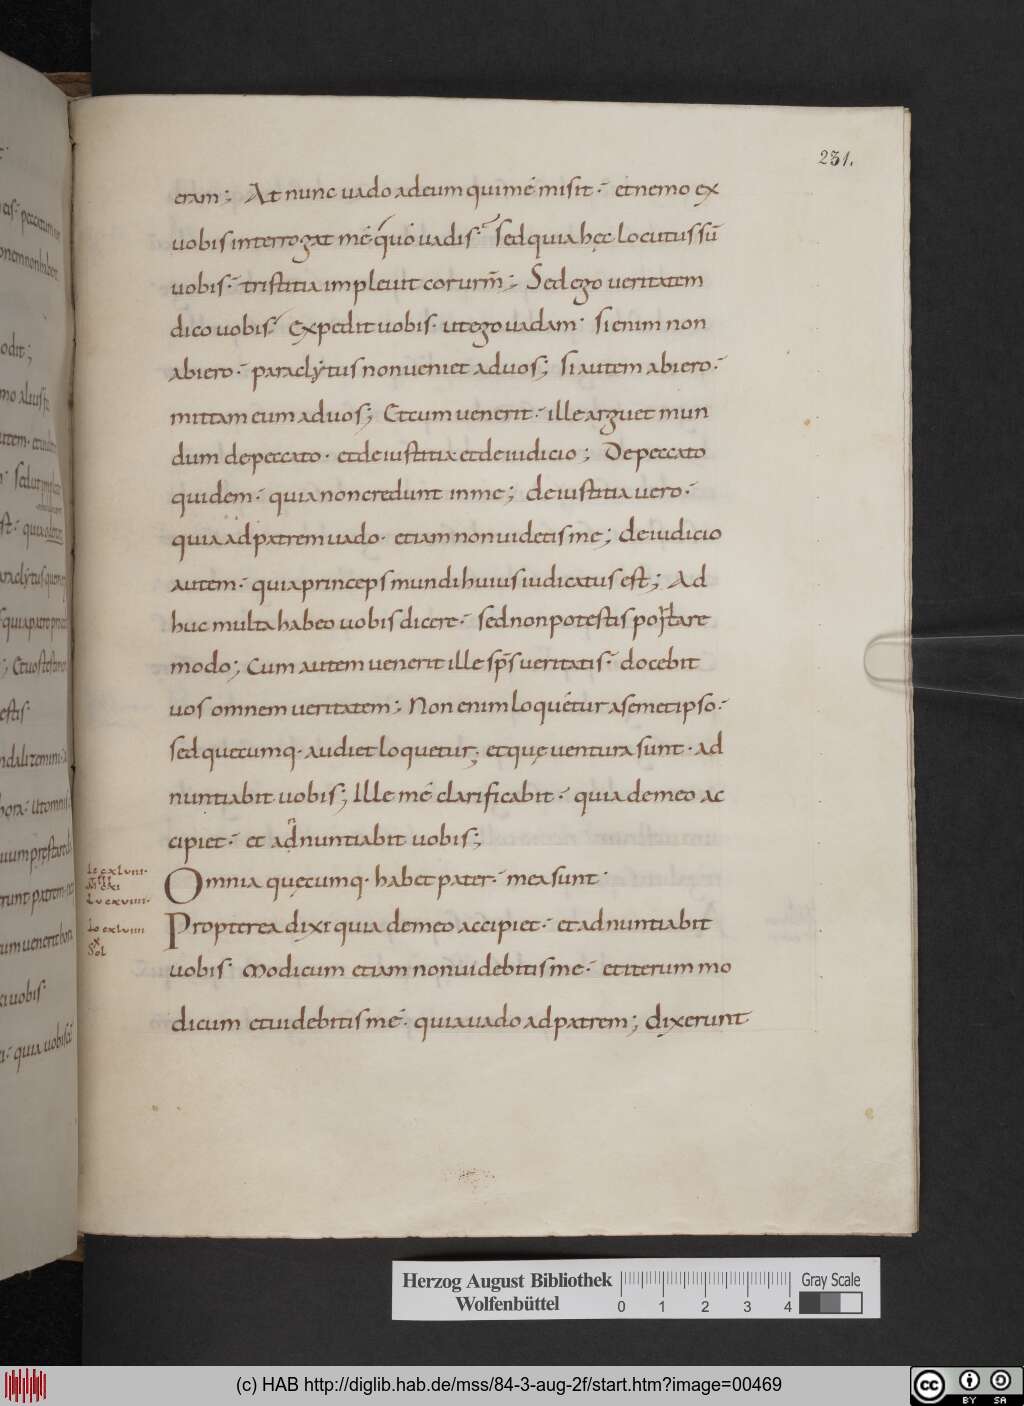 231.
eram; At nunc uado ad eum qui mé misit· et nemo ex
uobis interrogat mé quó uadis· sed quia hęc locutus sū
uobis· tristitia impleuit cor urm̄; Sed ego ueritatem
dico uobis· Expedit uobis· ut ego uadam· si enim non
abiero· paraclýtus non ueniet ad uos; si autem abiero·
mittam eum ad uos; Et cum uenerit· ille arguet mun
dum de peccato· et de iustitia et de iudicio; De peccato
quidem· quia non credunt in me; de iustitia uero·
quia ad patrem uado· et iam non uidetis me; de iudicio
autem· quia princeps mundi huius iudicatus est; Ad
huc multa habeo uobis dicere· sed non potestis portare
modo; Cum autem uenerit ille sp̄s ueritatis· docebit
uos omnem ueritatem; Non enim loquétur a semetipso·
sed quecumq· audiet loquetur; et quę uentura sunt· ad
nuntiabit uobis; Ille mé clarificabit· quia de meo ac
cipiet· et adnuntiabit uobis;
Omnia quęcumq· habet pater· mea sunt·
Propterea dixi quia de meo accipiet· et adnuntiabit
uobis· Modicum et iam non uidebitis me· et iterum mo
dicum et uidebitis mé· quia uado ad patrem; dixerunt
Io cxluiii·
cxi
Lu cxuiiii·
Io cxluiiii
x
Sol
Herzog August Bibliothek
Wolfenbüttel
0 1 2 3 4
Gray Scale
(c) HAB http://diglib.hab.de/mss/84-3-aug-2f/start.htm?image=00469
cc BY SA